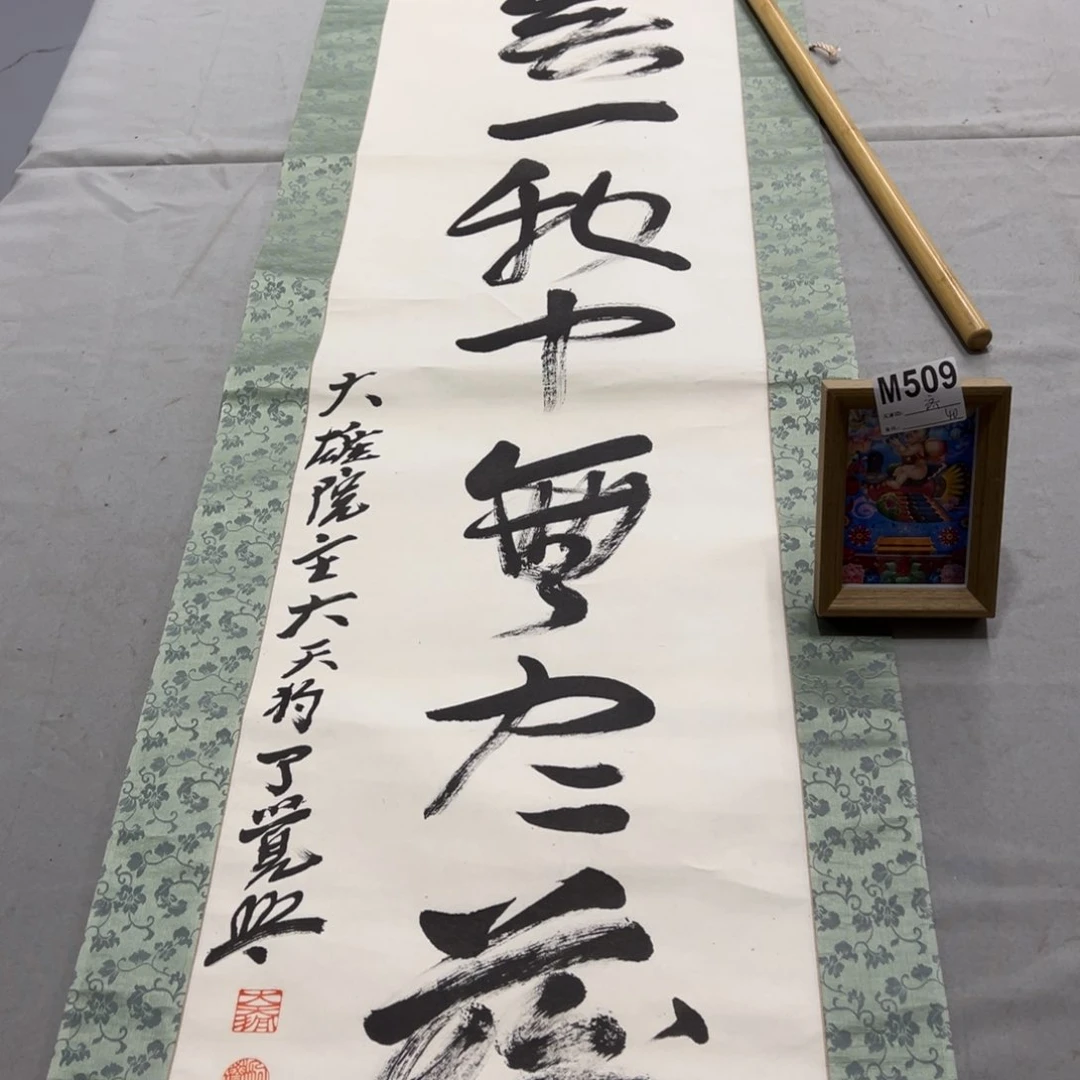 無一物中無尽蔵
大雄院主大天狗了覺
大天狗
M509
40